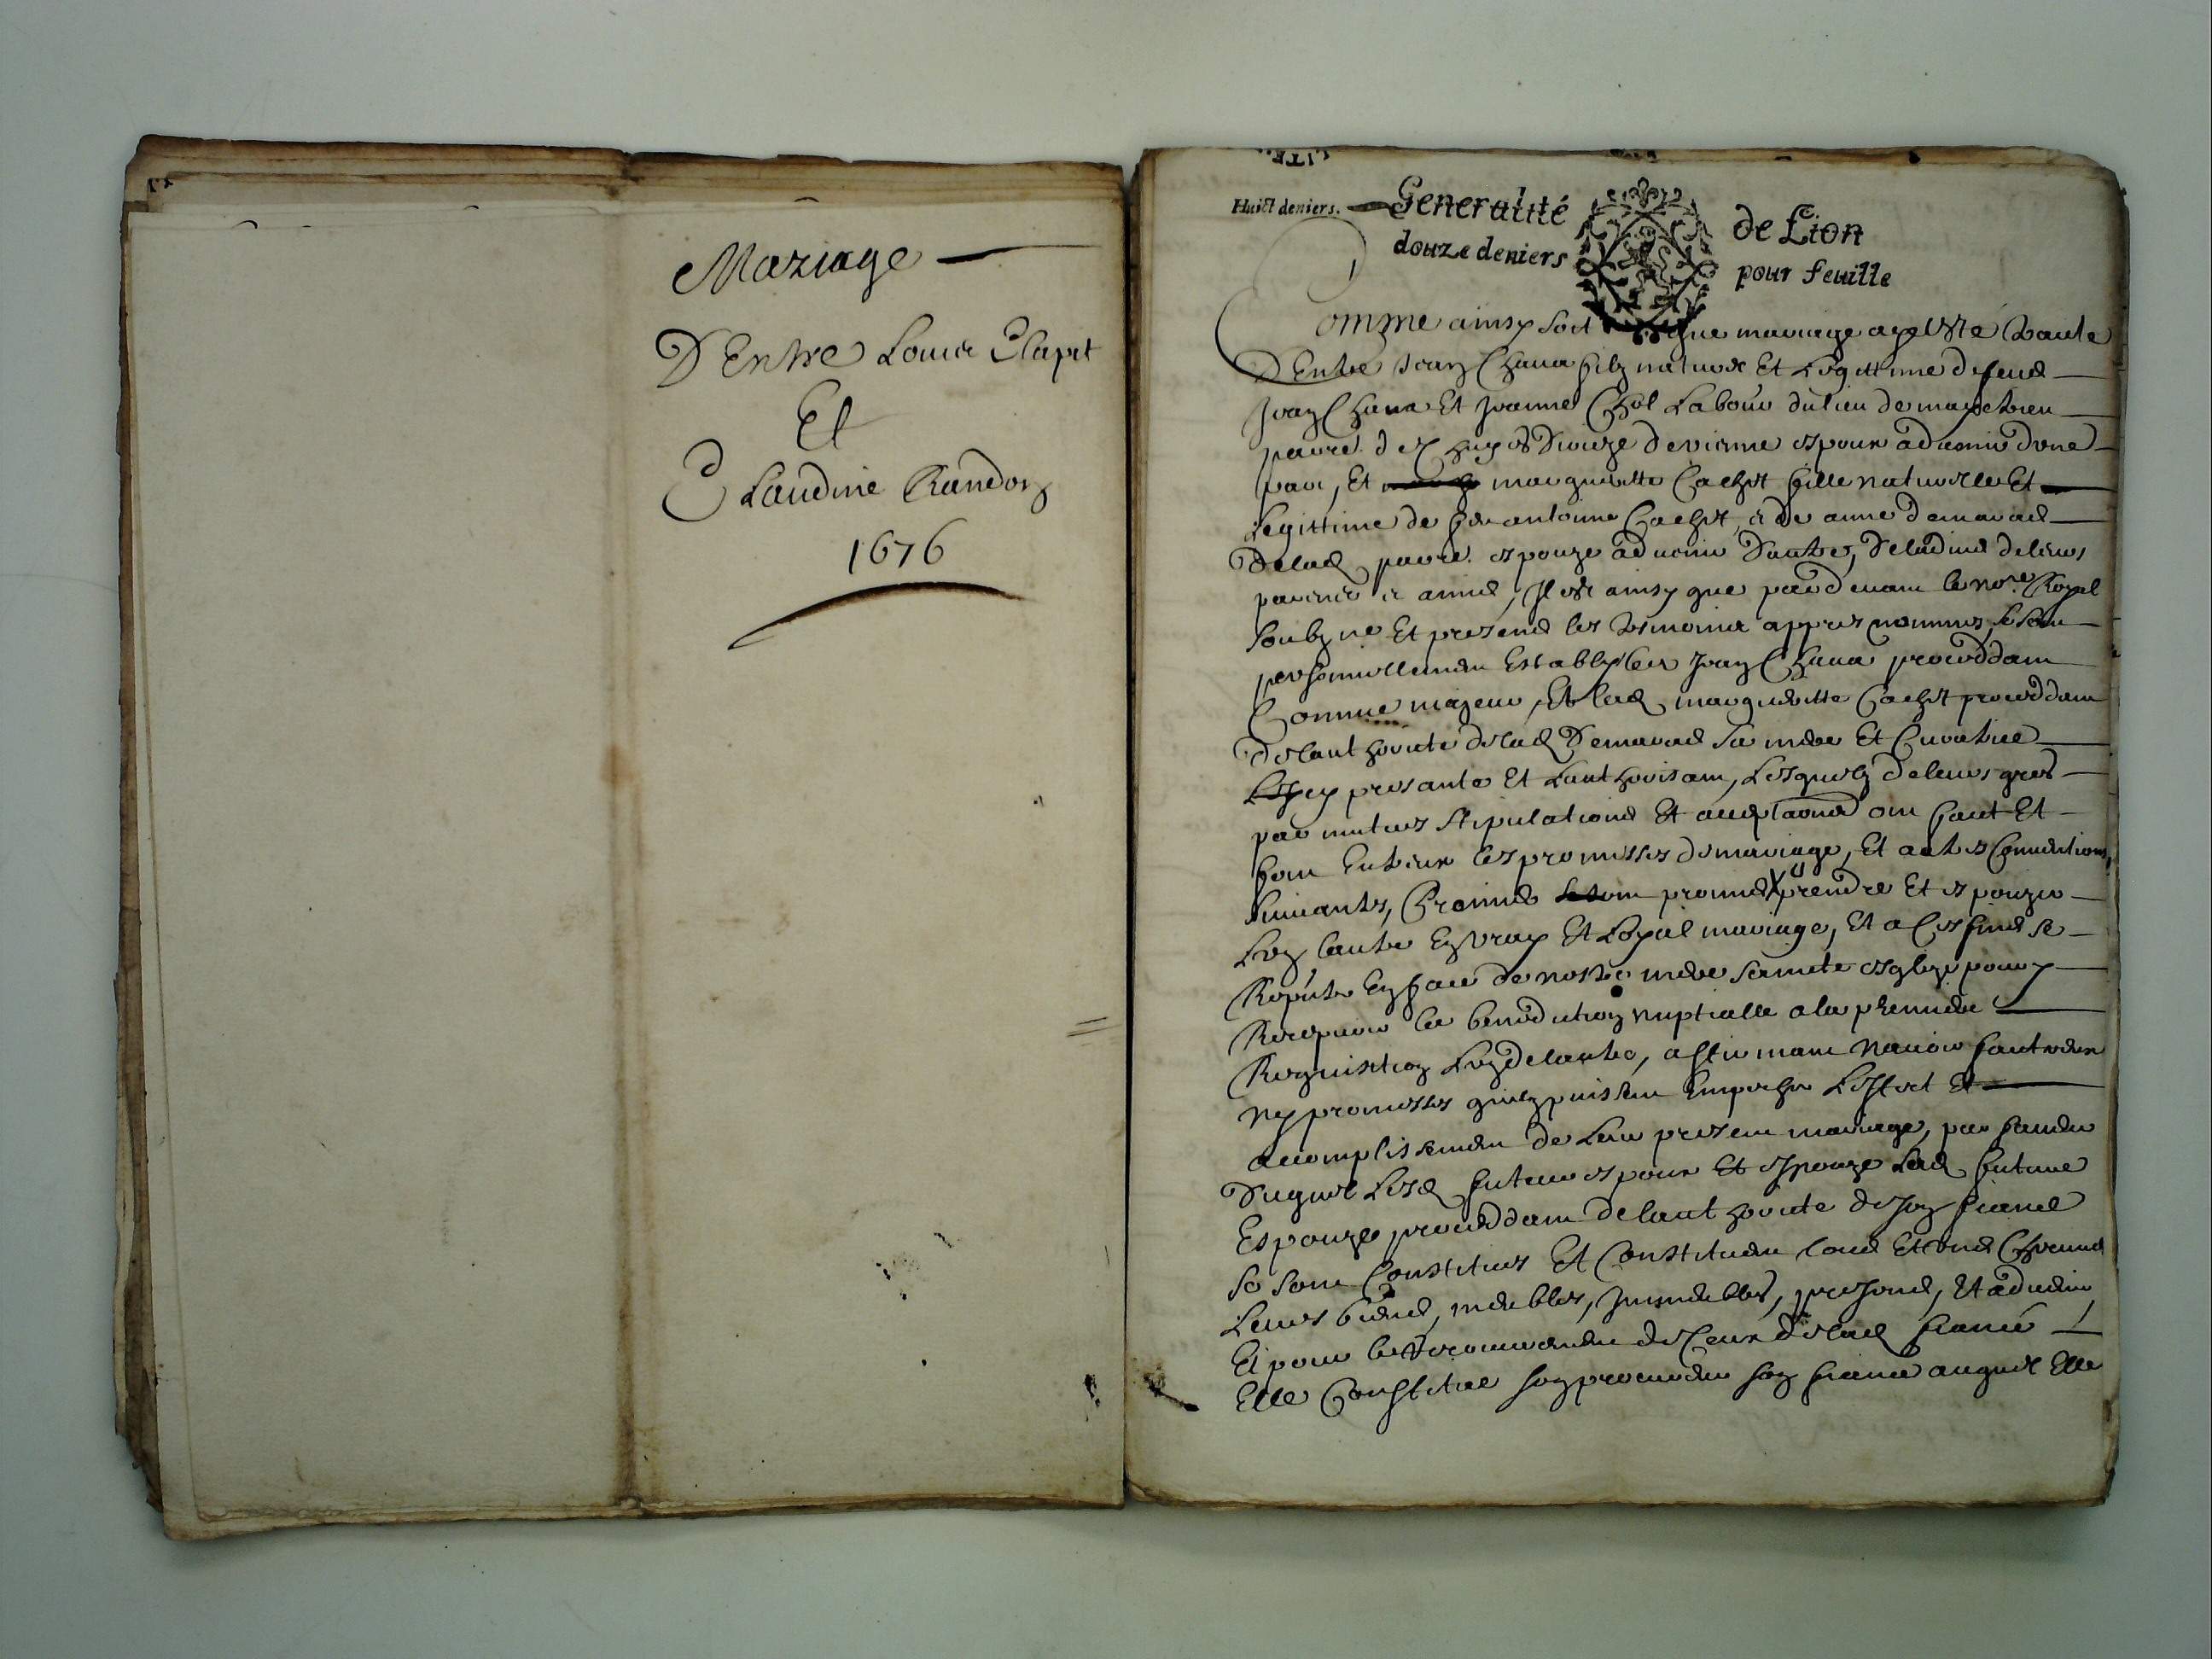 Mariage
D'Entre Louis Clapit
Et
Claudine Randon
1676
Huict deniers. Generalité de Lion
douze deniers pour feuille
Comme ainsy soit que mariage aye esté traicte
D'Entre Jean Chana filz naturel Et Legittime de feus
Jean Chana Et Jeanne Chol Labour du lieu de
parre. de Diouze de vienne espoux aduenir d'une
part, Et margueritte Cachet fille naturelle Et
Legittime de feu antoinne Cachet, et de anne demarad
Delad parre. espouze aduenir D'autre, De ladvis de leurs
parens et amis, Il est ainsy que par devant le nore. Royal
soubzne Et presens les tesmoins appres nommes, se sont
personnellement Establys led Jean Chana proceddant
Comme majeur, Et lad margueritte Cachet proceddant
De lauthorité de lad Demarad sa mere Et Curatrice
Icy presante Et Lauthorisant, Lesquelz de leurs gres
par mutues stipulations Et acceptaons ont faict Et
font Entreux les promesses de mariage, Et autres Conventions
suivantes, Premier sesont promis prendre Et espouzer
Lun lautre En vray Et Loyal mariage, Et a Ces fins se
En face de nostre mere saincte esglize pour y
Recepvoir la benediction nuptialle a la premiere
Requisition Lun de lautre, affirmant navoir faict veux
ny promesses quilz puissent Empecher Leffect Et
accomplissement de Leur present mariage, par faveur
Duquel Lesd futeurs espoux Et espouze Lad future
Espouze proceddant de lauthorité de son fiancé
se sont Constitues Et Constituent tous Et uns Chacuns
Leurs biens, meubles, Immeubles, presens, Et advenir
Et pour le recouvrement de Ceux de lad fiancée
Elle Constitue son procureur son fiancé auquel Elle